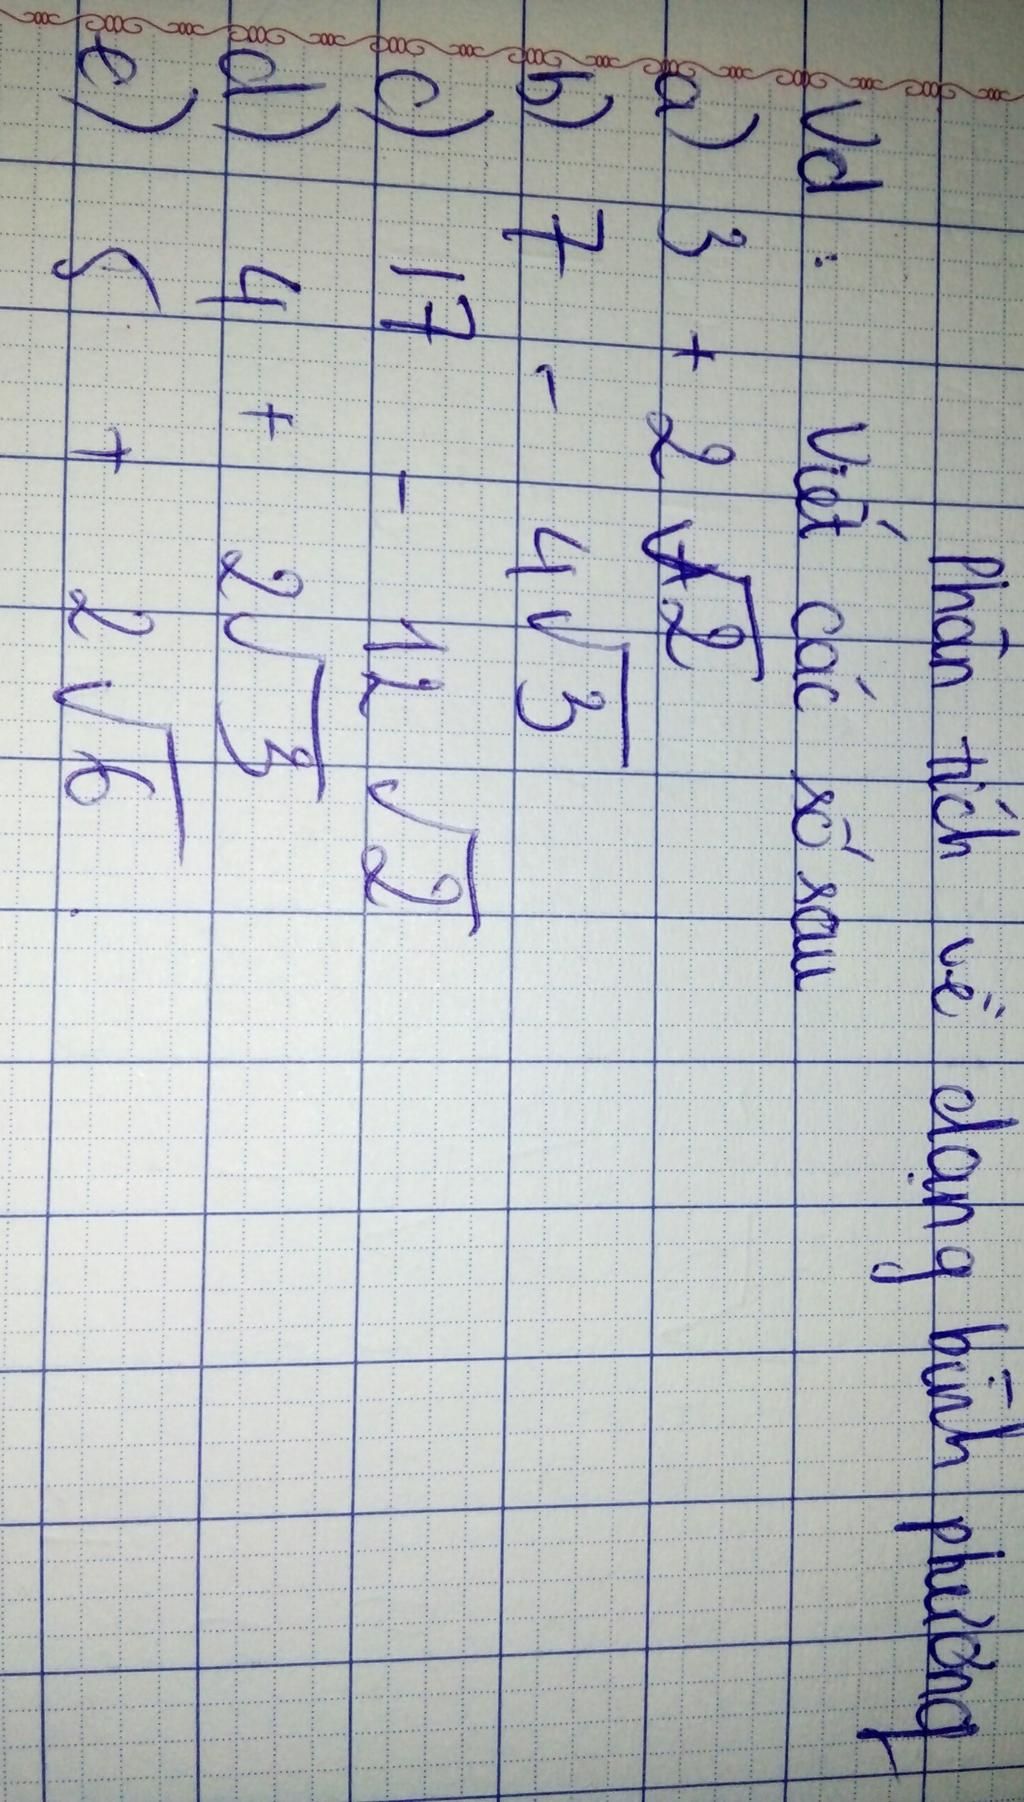 Phân tích về dạng bình phương
Vd : Viết các số sau
a) 3 + 2√2
b) 7 - 4√3
c) 17 - 12√2
d) 4 + 2√3
e) 5 + 2√6